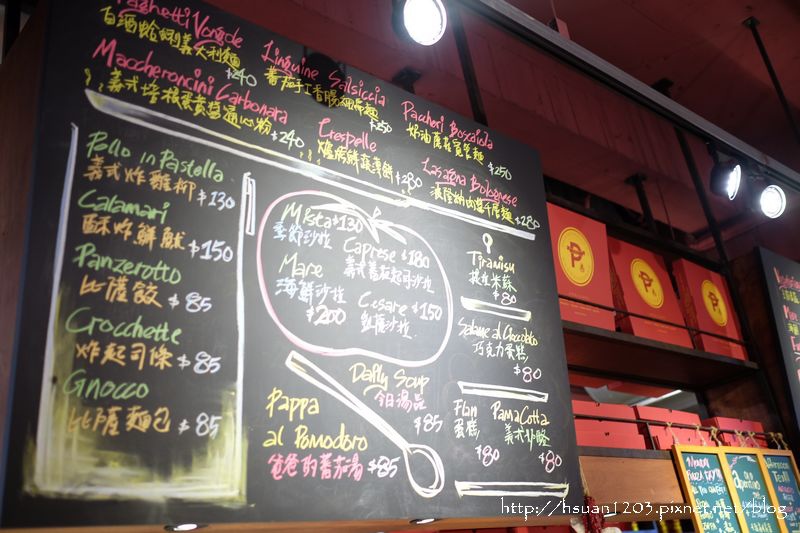 Spaghetti Vongole
白酒蛤蜊義大利麵 $240
Linguine Salsiccia
蕃茄手工香腸細扁麵 $250
Paccheri Boscaiola
奶油蘑菇寬管麵 $250
Maccheroncini Carbonara
義式培根蛋黃醬通心粉 $240
Crespelle
爐烤鮮蔬薄餅 $280
Lasagna Bolognese
波隆納肉醬千層麵 $280
Pollo in Pastella
義式炸雞柳 $130
Calamari
酥炸鮮魷 $150
Panzerotto
比薩餃 $85
Crocchette
炸起司條 $85
Gnocco
比薩麵包 $85
Mista $130
季節沙拉
Caprese $180
義式蕃茄起司沙拉
Mare
海鮮沙拉
$200
Cesare $150
凱薩沙拉
Daily Soup
今日湯品
$85
Pappa
al Pomodoro
爸爸的蕃茄湯 $85
Tiramisu
提拉米蘇
$80
Salame al Cioccolato
巧克力蛋糕
$80
Flan
蛋糕
$80
PanaCotta
義式奶酪
$80
P
P
P
http://hsuan1203.pixnet.net/blog